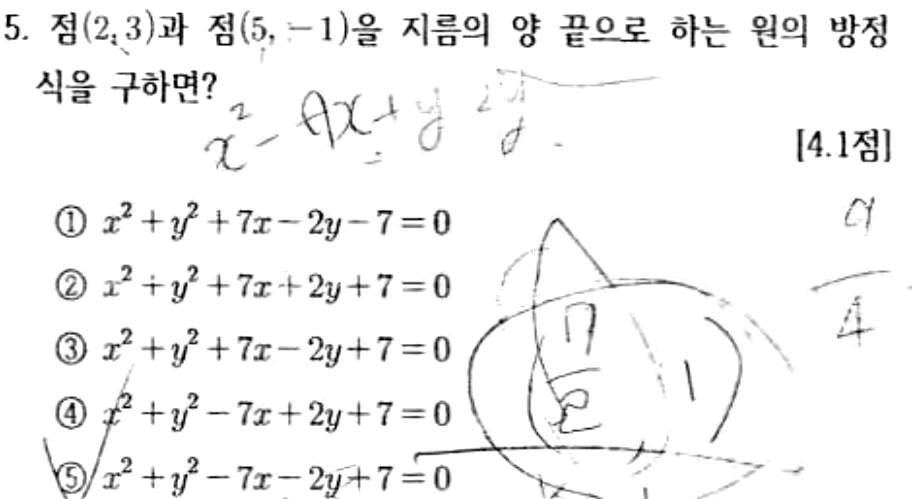 5. 점(2, 3)과 점(5, −1)을 지름의 양 끝으로 하는 원의 방정
식을 구하면?
[4.1점]
① x² + y² + 7x − 2y − 7 = 0
② x² + y² + 7x + 2y + 7 = 0
③ x² + y² + 7x − 2y + 7 = 0
④ x² + y² − 7x + 2y + 7 = 0
⑤ x² + y² − 7x − 2y + 7 = 0